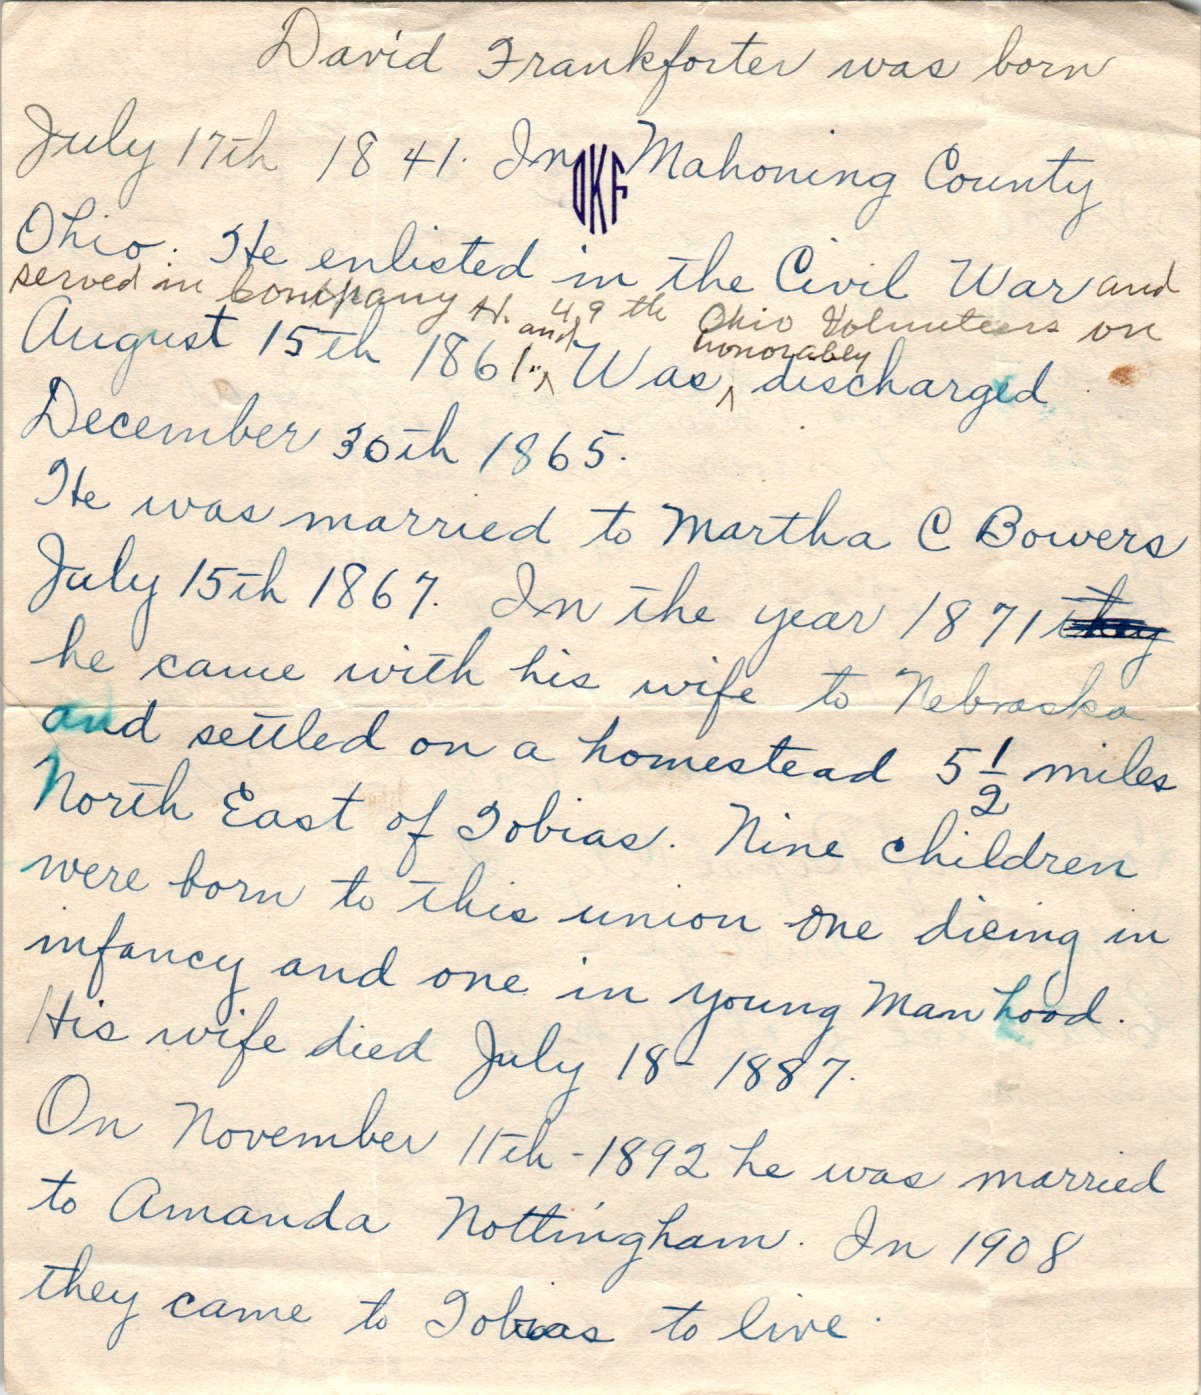 David Frankforter was born
July 17th 1841. In Mahoning County
OKF
Ohio. He enlisted in the Civil War and
served in Company H. 49th Ohio Volunteers on
August 15th 1861. and Was honorably discharged
December 30th 1865.
He was married to Martha C Bowers
July 15th 1867. In the year 1871 they
he came with his wife to Nebraska
and settled on a homestead 5 1/2 miles
North East of Tobias. Nine children
were born to this union one dieing in
infancy and one in young Man hood.
His wife died July 18- 1887.
On November 11th - 1892 he was married
to Amanda Nottingham. In 1908
they came to Tobias to live.